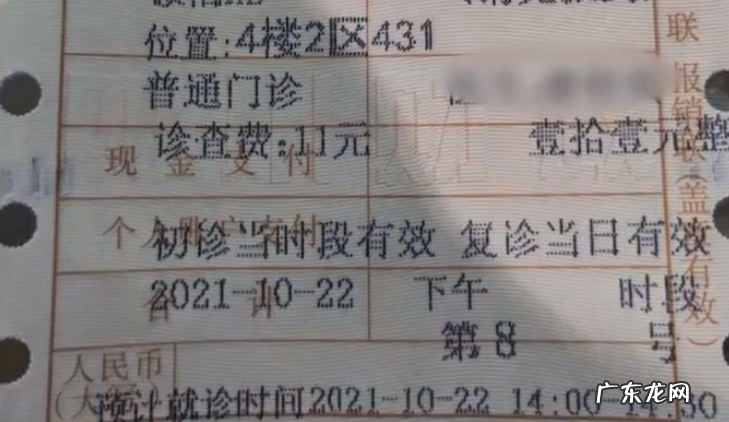 位置:4楼2区431
联
普通门诊
报销联(盖章有效)
诊查费:11元 壹拾壹元整
现金支付
个人账户支付
初诊当时段有效 复诊当日有效
合计
2021-10-22 下午 时段
第8 号
人民币
(大写)
预计就诊时间2021-10-22 14:00-14:30
广东龙网